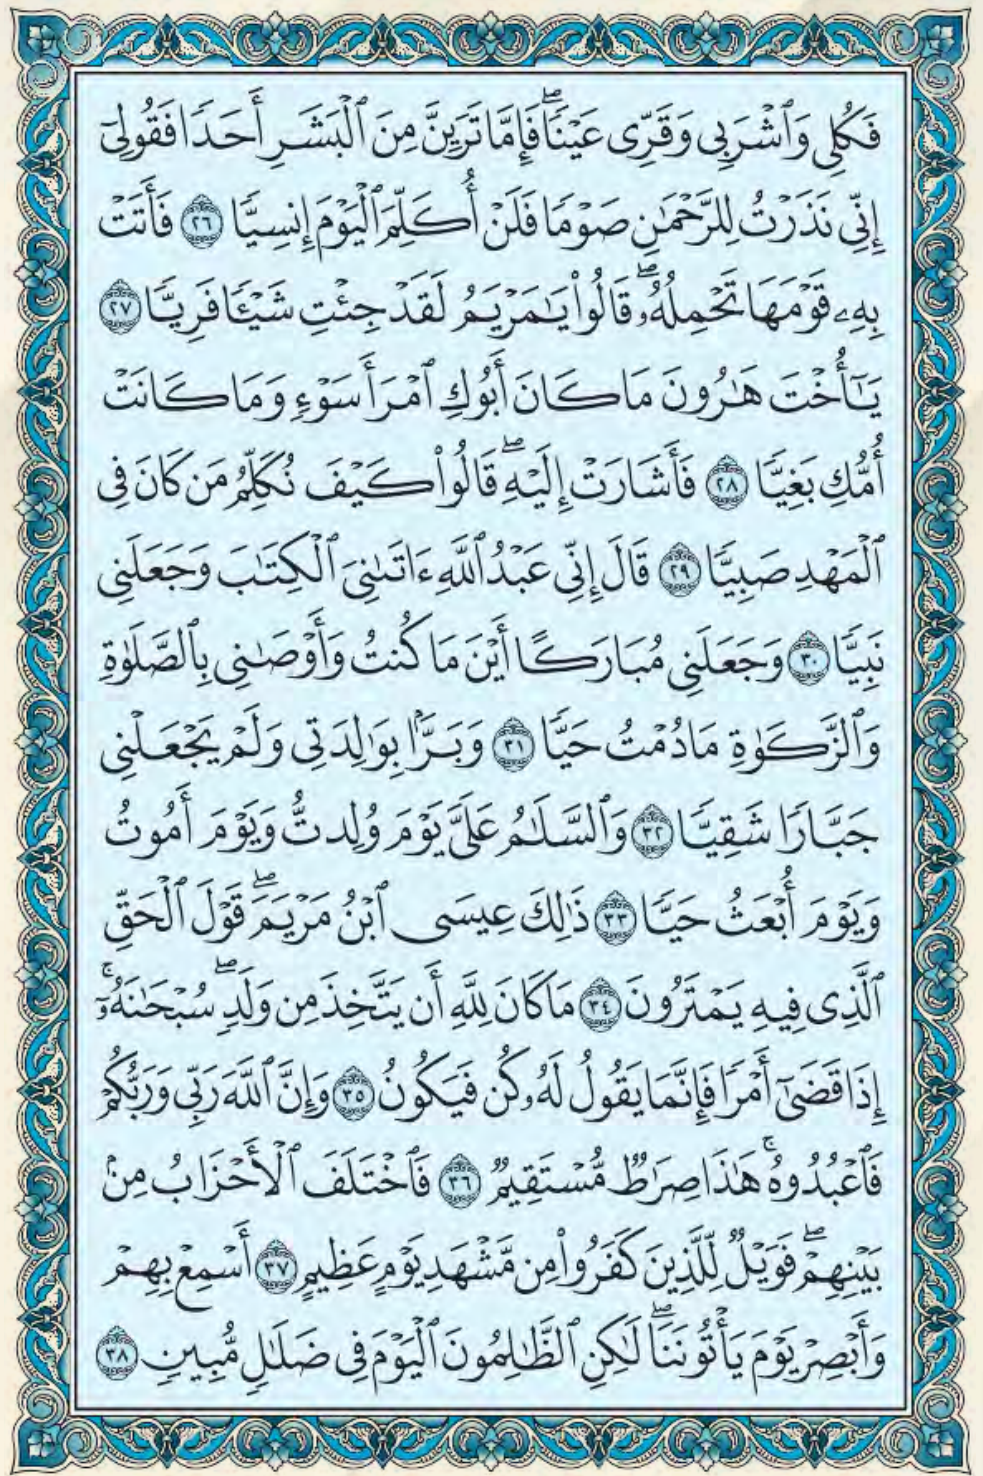 فَكُلِى وَٱشْرَبِى وَقَرِّى عَيْنًاۖ فَإِمَّا تَرَيِنَّ مِنَ ٱلْبَشَرِ أَحَدًا فَقُولِىٓ
إِنِّى نَذَرْتُ لِلرَّحْمَٰنِ صَوْمًا فَلَنْ أُكَلِّمَ ٱلْيَوْمَ إِنسِيًّا ٢٦ فَأَتَتْ
بِهِۦ قَوْمَهَا تَحْمِلُهُۥۖ قَالُوا۟ يَٰمَرْيَمُ لَقَدْ جِئْتِ شَيْـًٔا فَرِيًّا ٢٧
يَٰٓأُخْتَ هَٰرُونَ مَا كَانَ أَبُوكِ ٱمْرَأَ سَوْءٍ وَمَا كَانَتْ
أُمُّكِ بَغِيًّا ٢٨ فَأَشَارَتْ إِلَيْهِۖ قَالُوا۟ كَيْفَ نُكَلِّمُ مَن كَانَ فِى
ٱلْمَهْدِ صَبِيًّا ٢٩ قَالَ إِنِّى عَبْدُ ٱللَّهِ ءَاتَىٰنِىَ ٱلْكِتَٰبَ وَجَعَلَنِى
نَبِيًّا ٣٠ وَجَعَلَنِى مُبَارَكًا أَيْنَ مَا كُنتُ وَأَوْصَٰنِى بِٱلصَّلَوٰةِ
وَٱلزَّكَوٰةِ مَا دُمْتُ حَيًّا ٣١ وَبَرًّۢا بِوَٰلِدَتِى وَلَمْ يَجْعَلْنِى
جَبَّارًا شَقِيًّا ٣٢ وَٱلسَّلَٰمُ عَلَىَّ يَوْمَ وُلِدتُّ وَيَوْمَ أَمُوتُ
وَيَوْمَ أُبْعَثُ حَيًّا ٣٣ ذَٰلِكَ عِيسَى ٱبْنُ مَرْيَمَۖ قَوْلَ ٱلْحَقِّ
ٱلَّذِى فِيهِ يَمْتَرُونَ ٣٤ مَا كَانَ لِلَّهِ أَن يَتَّخِذَ مِن وَلَدٍۖ سُبْحَٰنَهُۥٓۚ
إِذَا قَضَىٰٓ أَمْرًا فَإِنَّمَا يَقُولُ لَهُۥ كُن فَيَكُونُ ٣٥ وَإِنَّ ٱللَّهَ رَبِّى وَرَبُّكُمْ
فَٱعْبُدُوهُۚ هَٰذَا صِرَٰطٌ مُّسْتَقِيمٌ ٣٦ فَٱخْتَلَفَ ٱلْأَحْزَابُ مِنۢ
بَيْنِهِمْۖ فَوَيْلٌ لِّلَّذِينَ كَفَرُوا۟ مِن مَّشْهَدِ يَوْمٍ عَظِيمٍ ٣٧ أَسْمِعْ بِهِمْ
وَأَبْصِرْ يَوْمَ يَأْتُونَنَاۖ لَٰكِنِ ٱلظَّٰلِمُونَ ٱلْيَوْمَ فِى ضَلَٰلٍ مُّبِينٍ ٣٨